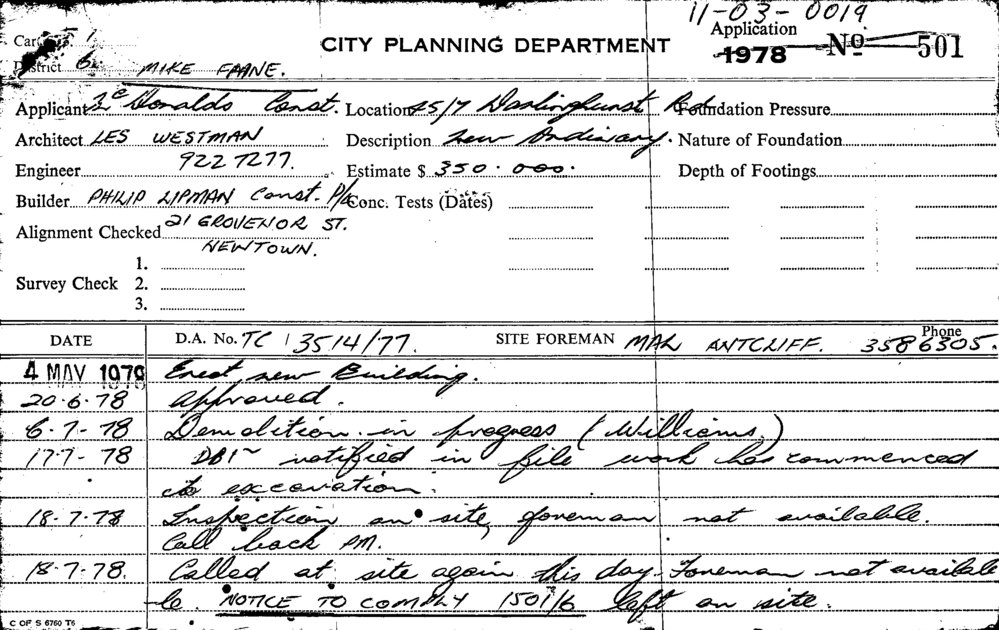 11-03-0019
Card No. 1
CITY PLANNING DEPARTMENT
Application
1978 No 501
District 6
MIKE FAANE.
Applicant McDonalds Const. Location 45/7 Darlinghurst Rd Foundation Pressure
Architect LES WESTMAN Description New Ordinary. Nature of Foundation
Engineer 922 7277. Estimate $ 350.000. Depth of Footings
Builder PHILIP LIPMAN Const. P/L Conc. Tests (Dates)
Alignment Checked 21 GROVENOR ST.
NEWTOWN.
1.
Survey Check 2.
3.
DATE D.A. No. TC 3514/77. SITE FOREMAN MAL ANTCLIFF. Phone 3586305.
4 MAY 1978 Erect new Building.
20.6.78 Approved.
6.7-78 Demolition in progress (Williams.)
17.7-78 notified in file work has commenced
to excavation.
18.7.78 Inspection on site, foreman not available.
Call back PM.
18.7.78. Called at site again this day. Foreman not availab
le. NOTICE TO COMPLY 1501/6 left on site.
C OF S 6760 T6